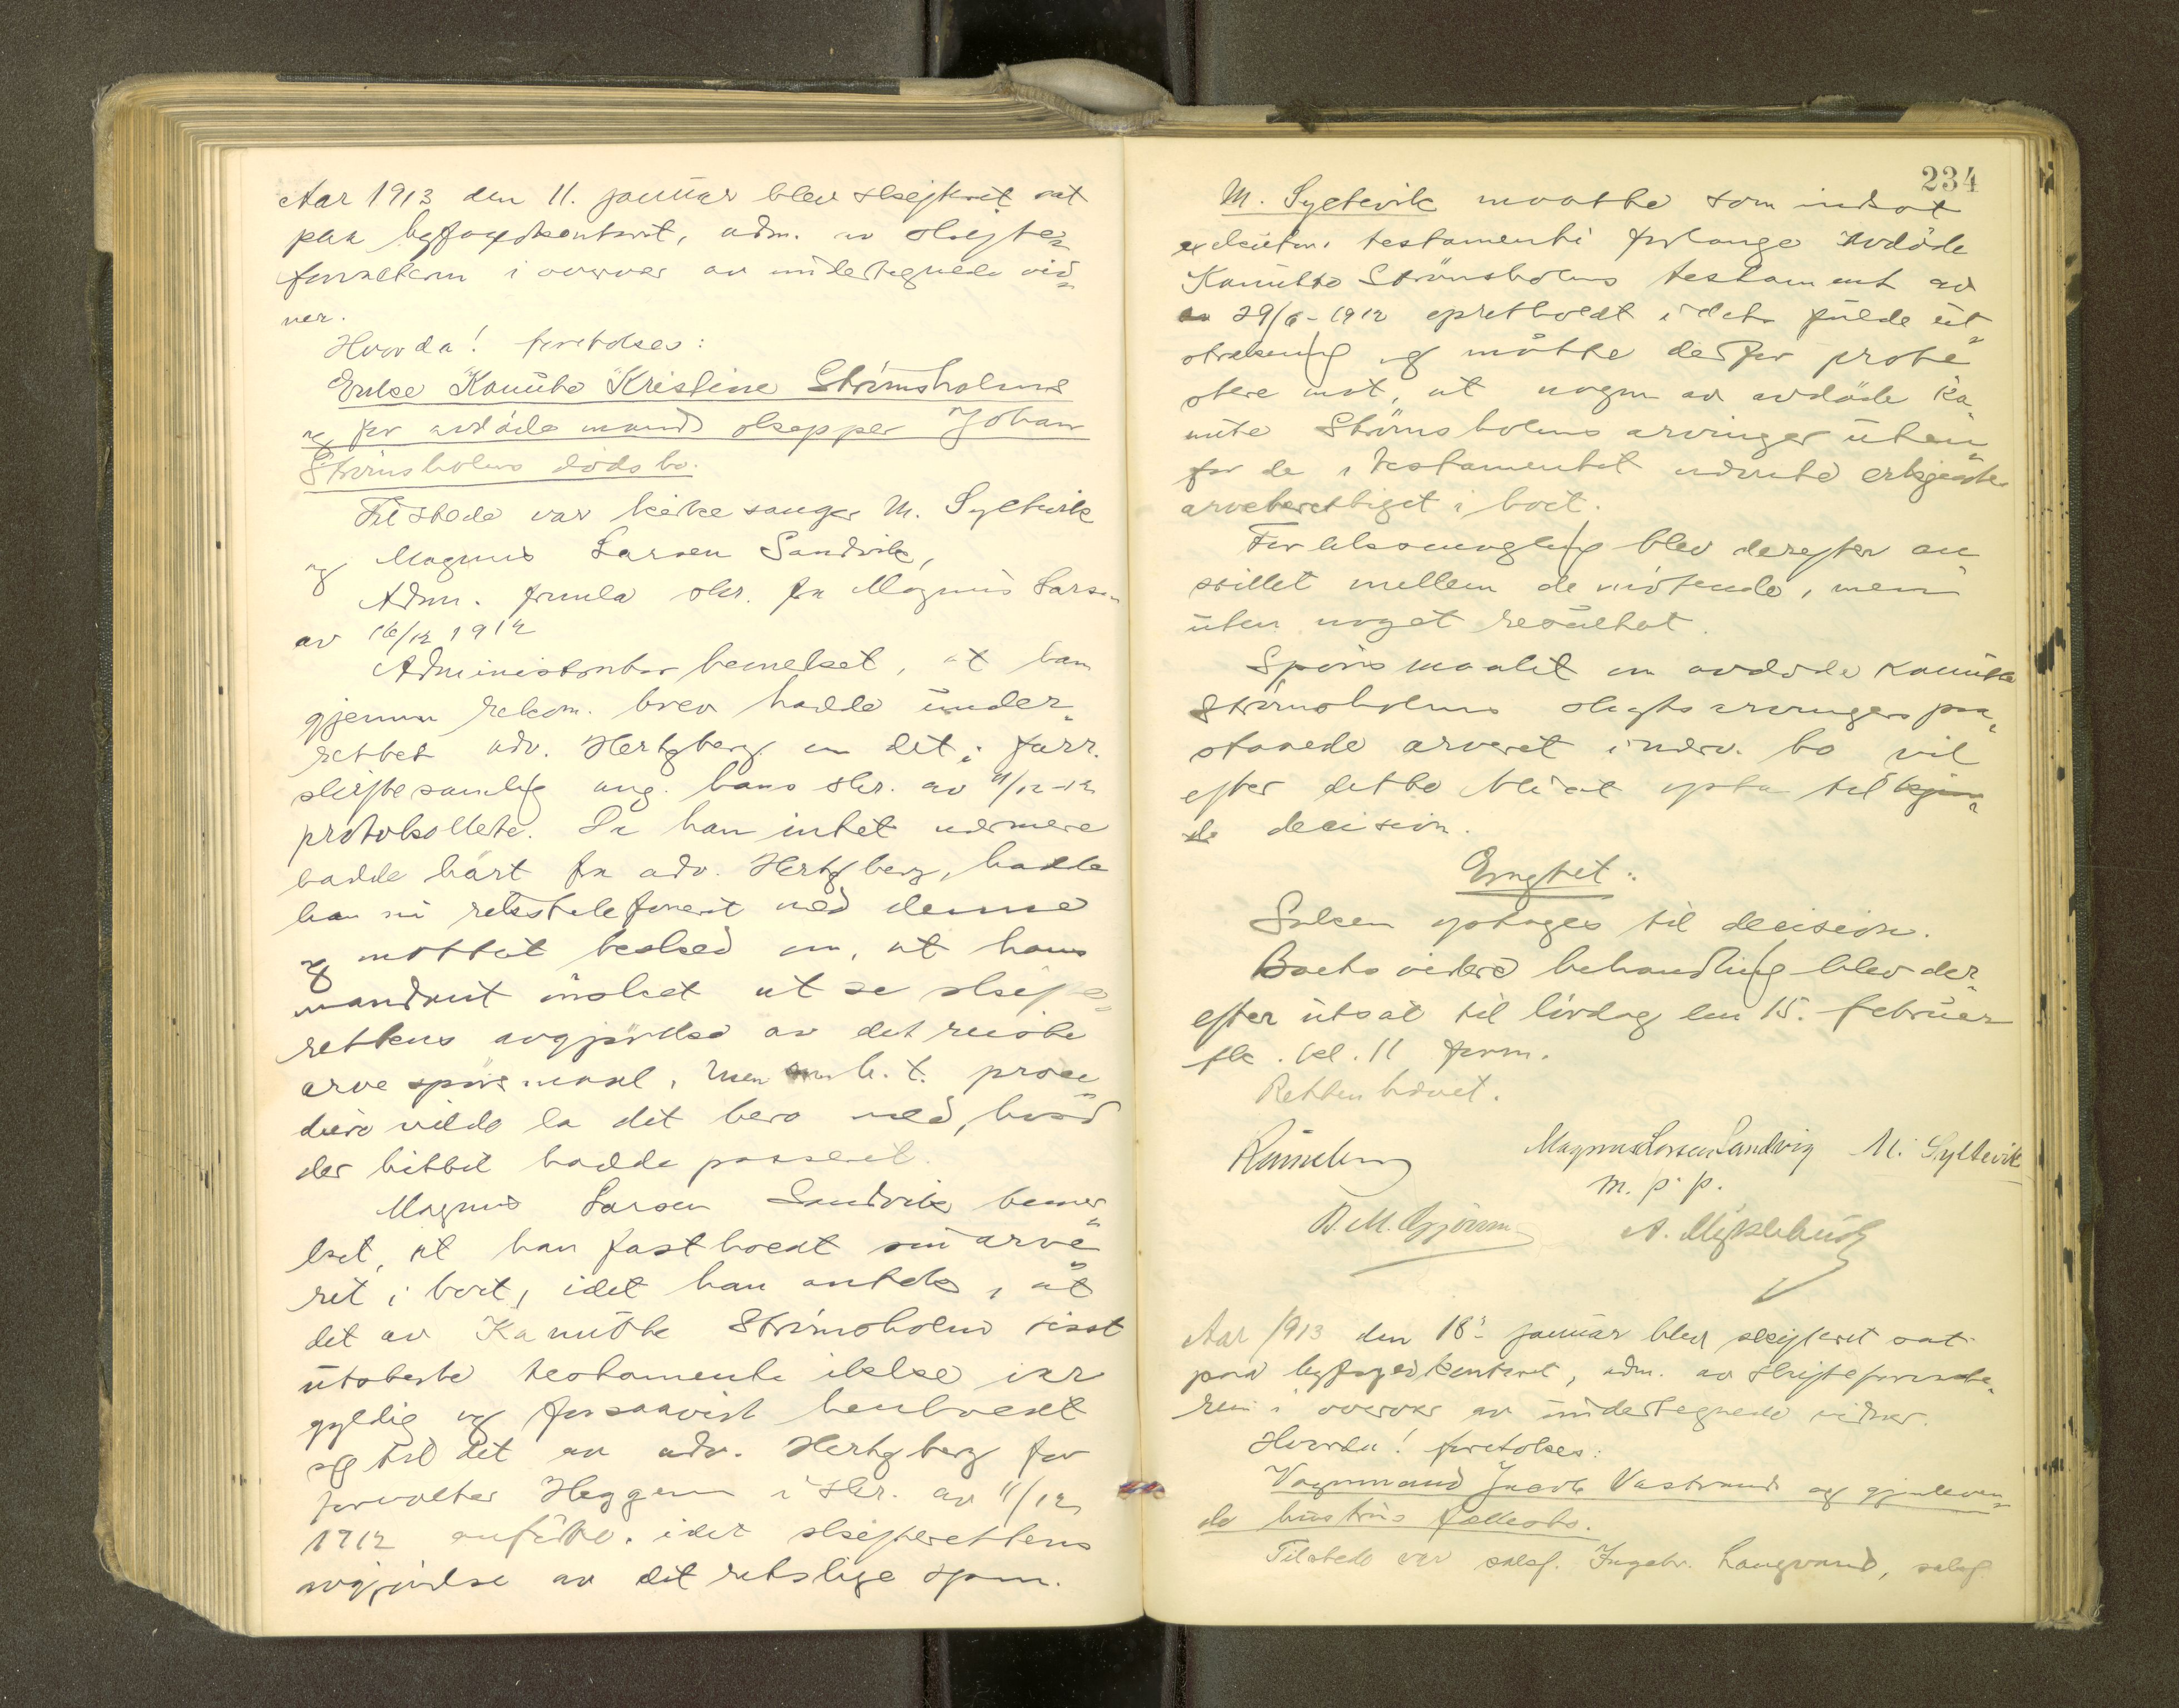 Aar 1913 den 11. januar blev skifteret sat
paa byfogedkontoret, adm. av skifte=
forvalteren i overvær av undertegnede vid=
ner.
Hvorda! foretokes:
Enke Kanutte Kristine Strömsholms
og før avdöde mand skipper Johan
Strömsholms dödsbo.
Tilstede var kirkesanger M. Syltevik
og Magnus Larsen Sandvik,
Adm. fremla skr. fra Magnus Larsen
av 16/12 1912
Administrator bemerket, at han
gjennem rekom. brev hadde under=
rettet adv. Hertzberg om det i forr.
skiftesamling ang. hans skr. av 11/12-12
protokollerte. Da han intet nærmere
hadde hört fra adv. Hertzberg, hadde
han nu rikstelefonert med denne
og mottat besked om, at hans
mandant önsket at se skifte=
rettens avgjörelse av det reiste
arvespörsmaal, men m. h. t. proce=
dure vilde la det bero med, hvad
der hittil hadde passeret.
Magnus Larsen Sandvik bemer=
ket, at han fastholdt sin arve=
ret i boet, idet han antok, at
det av Kanutte Strömsholm sisst
utstedte testamente ikke var
gyldig og forsaavidt henholdt
sig til det av adv. Hertzberg for
forvalter Heggem i skr. av 11/12
1912 anförte, idet skifterettens
avgjörelse av det retslige spsm.
234
M. Syltevik maatte som indsat
exekutor testamenti forlange avdöde
Kanutte Strömsholms testament av
29/6-1912 opretholdt i dets fulde ut=
strekning og maatte derfor prote=
stere mot, at nogen av avdöde Ka=
nutte Strömsholms arvinger uten=
for de i testamentet nævnte erkjendes
arveberettiget i boet.
Forliksmægling blev derefter an=
stillet mellem de mötende, men
uten noget resultat.
Spörsmaalet om avdöde Kanutte
Strömsholms slegtsarvingers paa=
staaede arveret i nærv. bo vil
efter dette bli at opta til kjen=
de decision.
Eragtet:
Saken optages til decision.
Boets videre behandling blev der=
efter utsat til lördag den 15. februar
fk. kl. 11 form.
Retten hævet.
Magnus Larsen Sandvig M. Syltevik
m. p. p.
Aar 1913 den 18. januar blev skifteret sat
paa byfogedkontoret, adm. av skifteforvalte=
ren i overvær av undertegnede vidner.
Hvorda! foretokes:
Vognmand Jacob Vestrand og gjenleven=
de hustrus fællesbo.
Tilstede var saksf. Ingebr. Langvand, saksf.